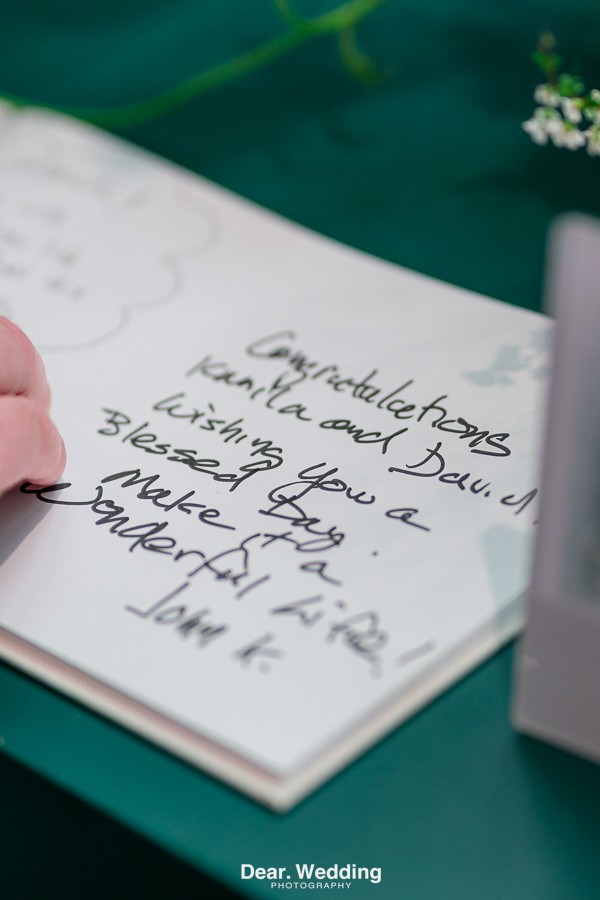 Congratulations
Kamila and David!
Wishing you a
Blessed Day.
Make it a
Wonderful Life!
John K.
Dear. Wedding
PHOTOGRAPHY